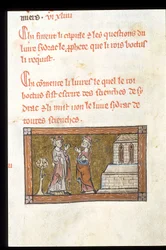 miers. vi xliiii
Chi finent li capitle & les questions du
livre sydrac le philosophe que li rois boctus
li requist.
Chi comence li livres le quel le roi
boctus fist escrire des sciences de sy
drac & li mist non le livre sydrac de
toutes sciences.